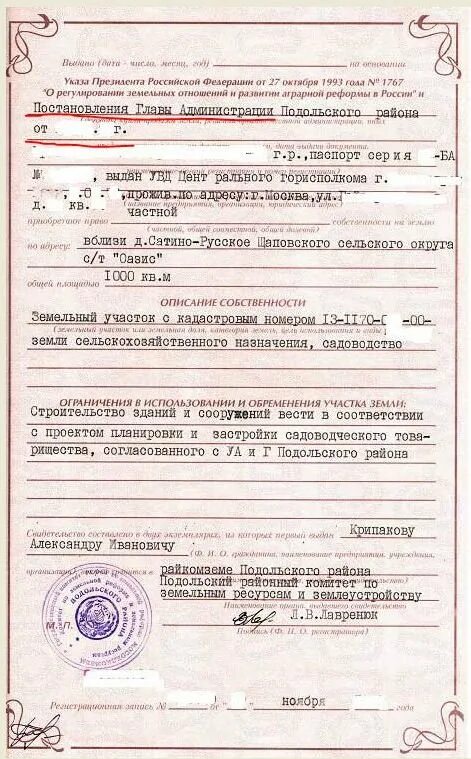 Выдано (дата - число, месяц, год) на основании
Указа Президента Российской Федерации от 27 октября 1993 года № 1767
"О регулировании земельных отношений и развитии аграрной реформы в России" и
Постановления Главы Администрации Подольского района
от г.
г.р.,паспорт серия -БА
, выдан УВД Цент рального горисполкома г.
,прожив.по адресу:г.Москва,ул.
д. кв.
частной
приобретает право собственности на землю
(частной, общей совместной, общей долевой)
по адресу: вблизи д.Сатино-Русское Щаповского сельского округа
с/т "Оазис"
1000 кв.м
общей площадью
ОПИСАНИЕ СОБСТВЕННОСТИ
Земельный участок с кадастровым номером 13-1170- -00-
(земельный участок или земельная доля, категория земель, цель использования и виды
земли сельскохозяйственного назначения, садоводство
ОГРАНИЧЕНИЯ В ИСПОЛЬЗОВАНИИ И ОБРЕМЕНЕНИЯ УЧАСТКА ЗЕМЛИ:
Строительство зданий и сооружений вести в соответствии
с проектом планировки и застройки садоводческого това-
рищества, согласованного с УА и Г Подольского района
Свидетельство составлено в двух экземплярах, из которых первый выдан Крипакову
Александру Ивановичу
(Ф. И. О. гражданина, наименование предприятия, учреждения,
райкомземе Подольского района
Подольский районный комитет по
земельным ресурсам и землеустройству
Наименование органа, выдавшего свидетельство
М.П. Л.В.Лавренюк
Подпись (Ф. И. О. регистратора)
ПОДОЛЬСКОГО РАЙОНА
Регистрационная запись № от " " ноября года